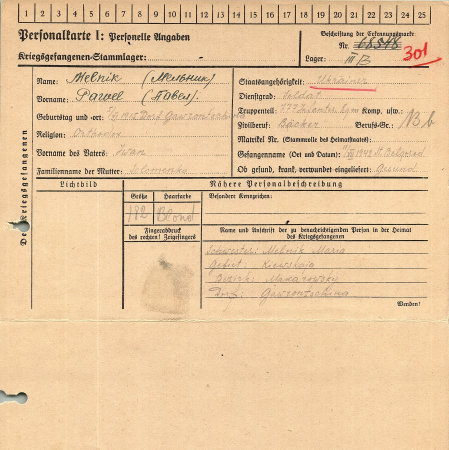 1 2 3 4 5 6 7 8 9 10 11 12 13 14 15 16 17 18 19 20 21 22 23 24 25
Personalkarte I: Personelle Angaben
Kriegsgefangenen-Stammlager:
Beschriftung der Erkennungsmarke
Nr. 68548
Lager: III B
301
Des Kriegsgefangenen
Name: Melnik (Мельник)
Vorname: Pawel (Павел).
Geburtstag und -ort:
Religion: Orthodox
Vorname des Vaters: Iwan
Familienname der Mutter:
Staatsangehörigkeit: Ukrainer
Dienstgrad: Soldat
Truppenteil: 777 Komp. usw.:
Zivilberuf: Bäcker Berufs-Gr.: N3b
Matrikel Nr. (Stammrolle des Heimatstaates):
Gefangennahme (Ort und Datum): 1942 Belgorod
Ob gesund, krank, verwundet eingeliefert: Gesund
Lichtbild
Nähere Personalbeschreibung
Größe Haarfarbe
182 Blond
Besondere Kennzeichen:
Fingerabdruck
des rechten! Zeigefingers
Name und Anschrift der zu benachrichtigenden Person in der Heimat
des Kriegsgefangenen
Schwester: Melnik Maria
Gebiet: Kiewskaja
Bezirk: Makarowsky
Dorf: Gawrontschina
Wenden!